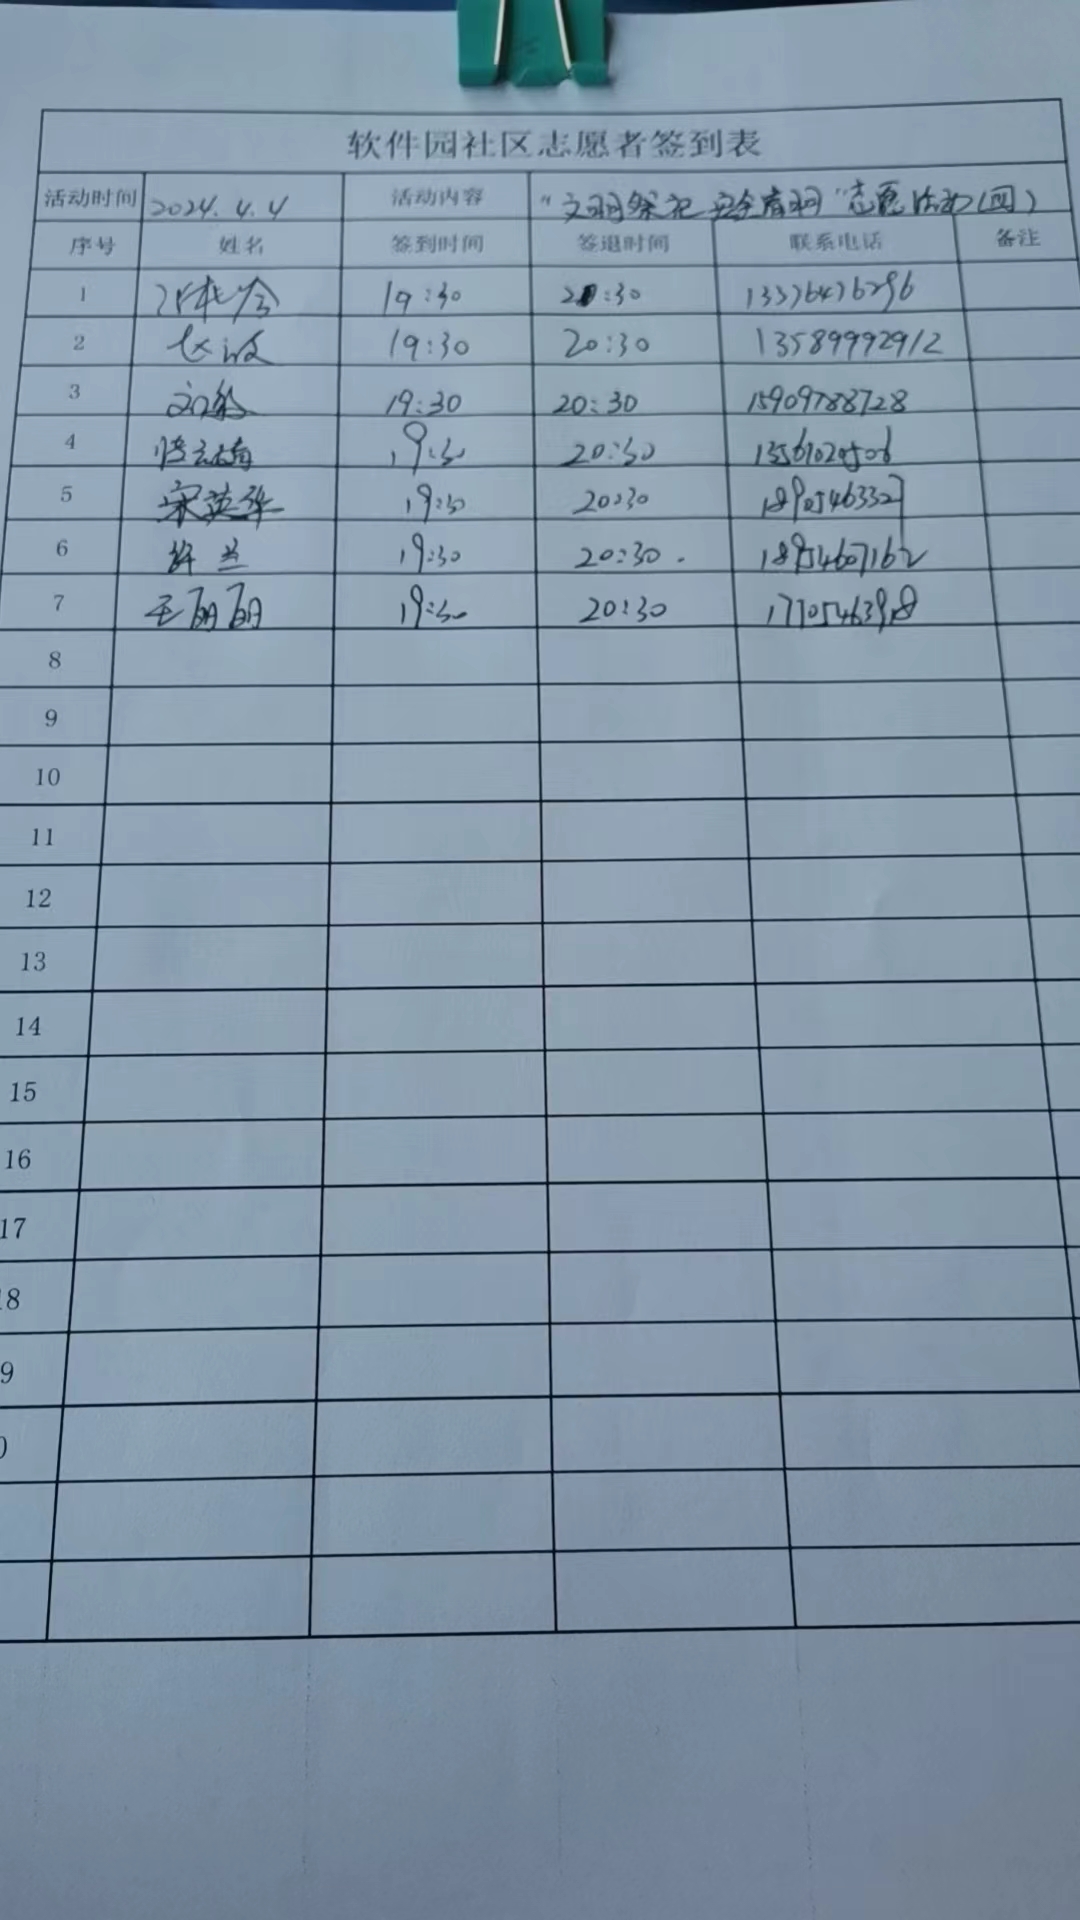 软件园社区志愿者签到表
活动时间 2024.4.4 活动内容 "文明祭祀 安全清明"志愿活动(四)
序号 姓名 签到时间 签退时间 联系电话 备注
1 19:30 20:30 13376476296
2 19:30 20:30 13589992912
3 19:30 20:30 15909788728
4 19:30 20:30
5 宋英华 19:30 20:30
6 许兰 19:30 20:30. 18954607162
7 王丽丽 19:30 20:30
8
9
10
11
12
13
14
15
16
17
18
9
0